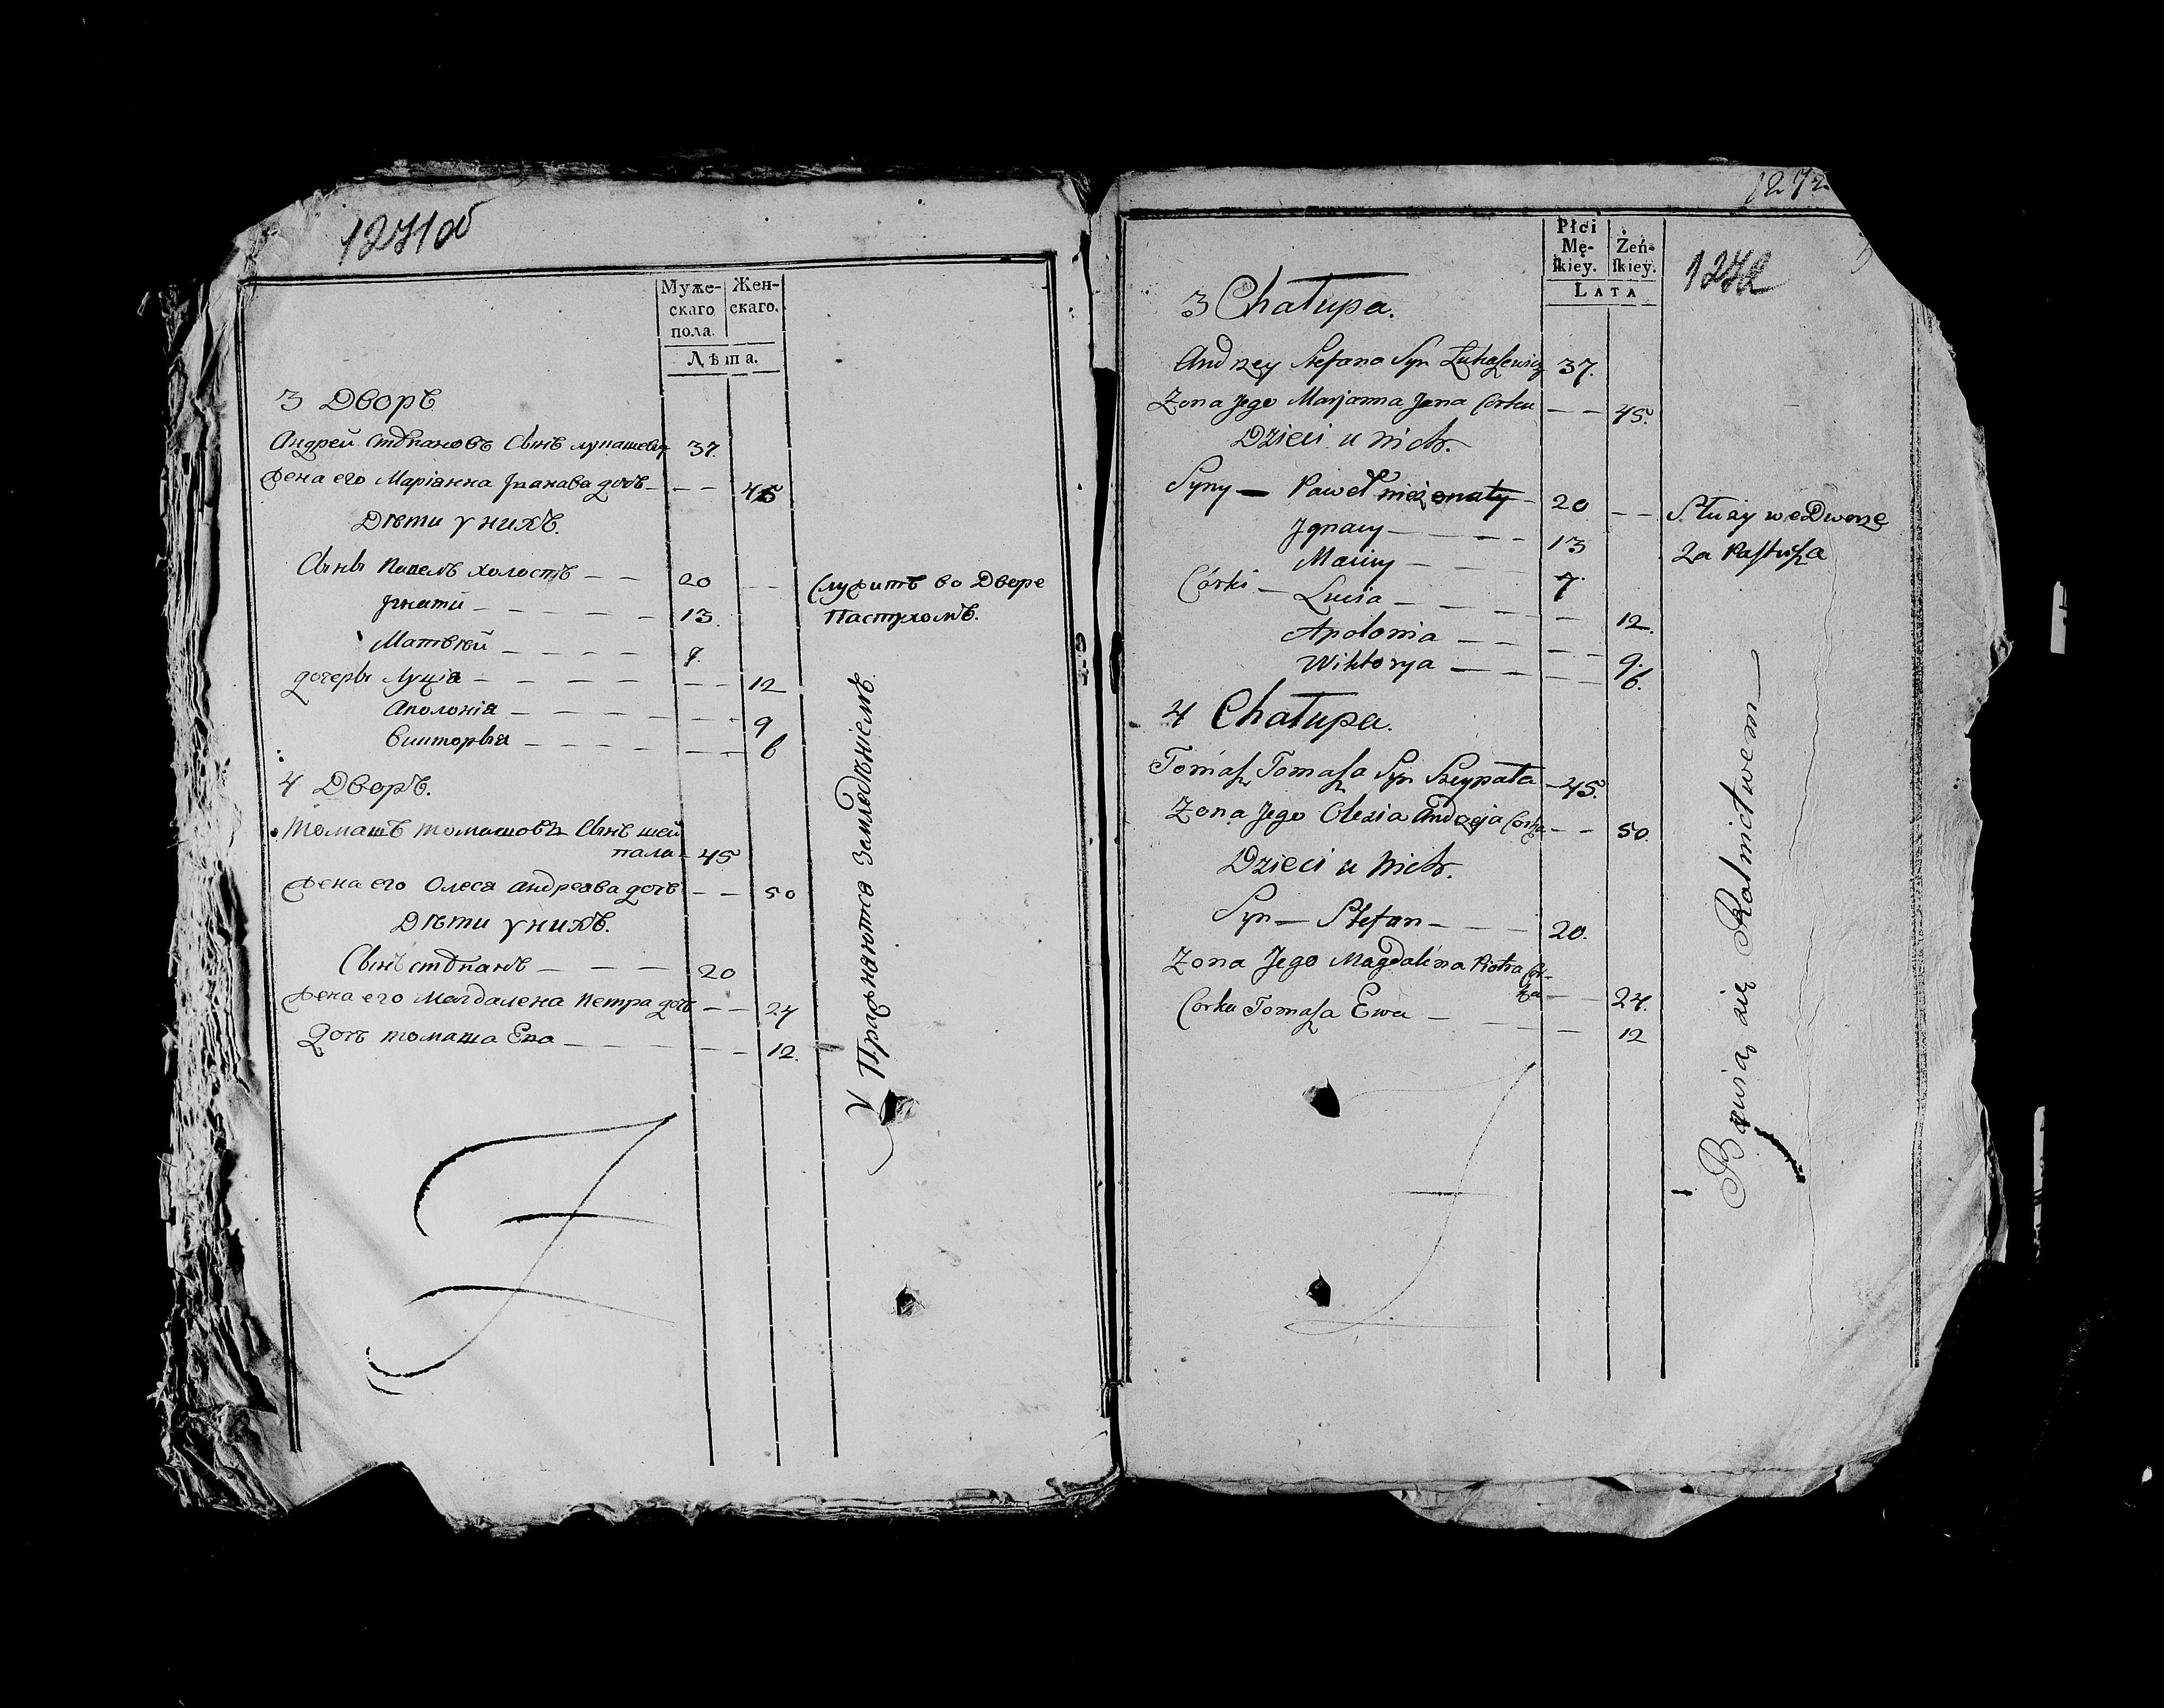 1271об
Муже- Жен-
скаго скаго.
пола.
Лѣта.
3 Дворъ
Андрей Стѣпановъ Сынъ лукашевич 37.
Жена его Маріанна Іванава дочь — — 45
Дѣти у нихъ.
Сыны Павелъ холостъ — — 20 — — Служитъ во Дворе
Игнати — — — — 13. Пастухомъ.
Матвѣй — — — — 7.
дочеры Луція — — — — — — 12
Аполонія — — — — — — 9
Викторыя — — — — — — 6
4 Дворъ.
Томашъ томашовъ Сынъ шей
пала — 45
Жена его Олеся андреява дочь — — 50
Дѣти у нихъ.
Сынъ стѣпанъ — — — 20
Жена его Магдалена петра дочь — — 24
Дочь томаша Ева — — — — — — 12.
Упражняются Земледѣніемъ.
1272
1272
Płci
Mę- Żeń-
skiey. skiey.
LATA
3 Chałupa.
Andrzey Stefana Syn Łukaszewicz 37.
Zona Jego Marjanna Jana Corka — — 45.
Dzieci u nich.
Syny — Paweł nieżonaty — 20 — — Służy we Dworze
Jgnacy — — — — 13 za Pastucha
Maciey — — — 7.
Córki — Lucia — — — — 12.
Apolonia — — — — 9.
Wiktorya — — — — 6.
4 Chałupa.
Tomasz Tomasza Syn Szeypała — 45.
Zona Jego Olesia Andrzeja Corka — — 50.
Dzieci u Nich.
Syn — Stefan — — — 20.
Zona Jego Magdalena Piotra Cor-
ka — — 24.
Corka Tomasza Ewa — — — — 12
Bawią się Rolnictwem —